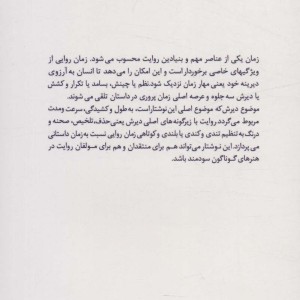 زمان یکی از عناصر مهم و بنیادین روایت محسوب می شود. زمان روایی از
ویژگیهای خاصی برخوردار است و این امکان را می‌دهد تا انسان به آرزوی
دیرینه خود یعنی مهار زمان نزدیک شود. نظم یا چینش، بسامد یا تکرار و کشش
یا دیرش سه جلوه و عرصه اصلی زمان پروری در داستان تلقی می شوند.
موضوع دیرش که موضوع اصلی این نوشتار است، به طول و کشیدگی، سرعت و مدت
مربوط می‌گردد. روایت با زیرگونه‌های اصلی دیرش یعنی حذف، تلخیص، صحنه و
درنگ به تنظیم تندی و کندی یا بلندی و کوتاهی زمان روایی نسبت به زمان داستانی
می‌پردازد. این نوشتار می‌تواند هم برای منتقدان و هم برای مولفان روایت در
هنرهای گوناگون سودمند باشد.